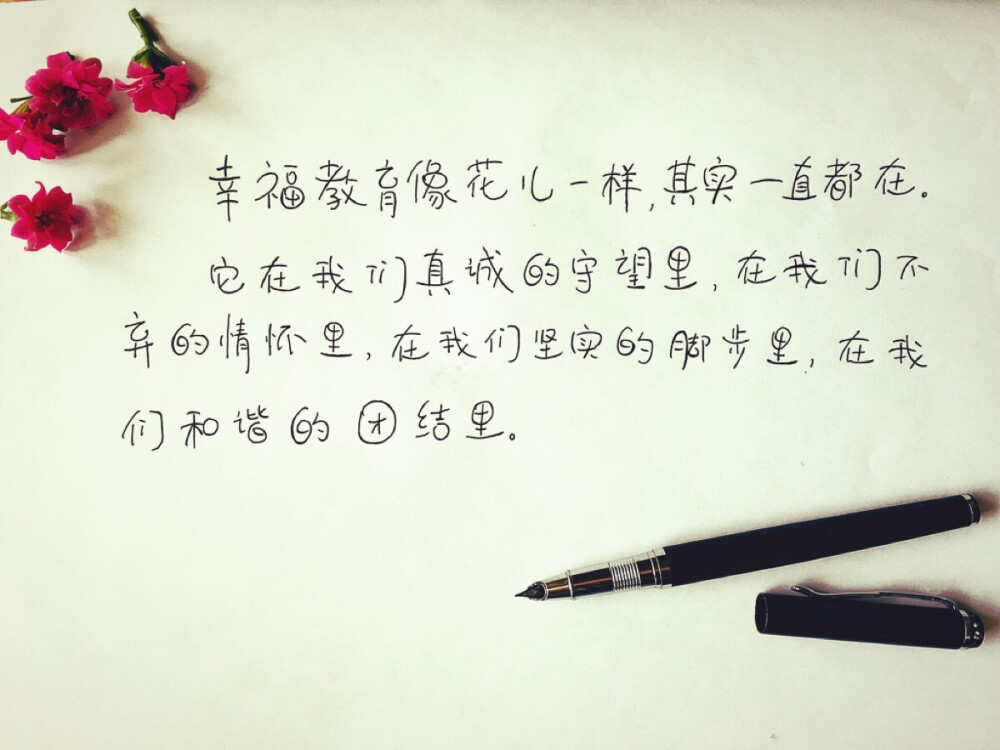 幸福教育像花儿一样,其实一直都在。
它在我们真诚的守望里,在我们不
弃的情怀里,在我们坚实的脚步里,在我
们和谐的团结里。